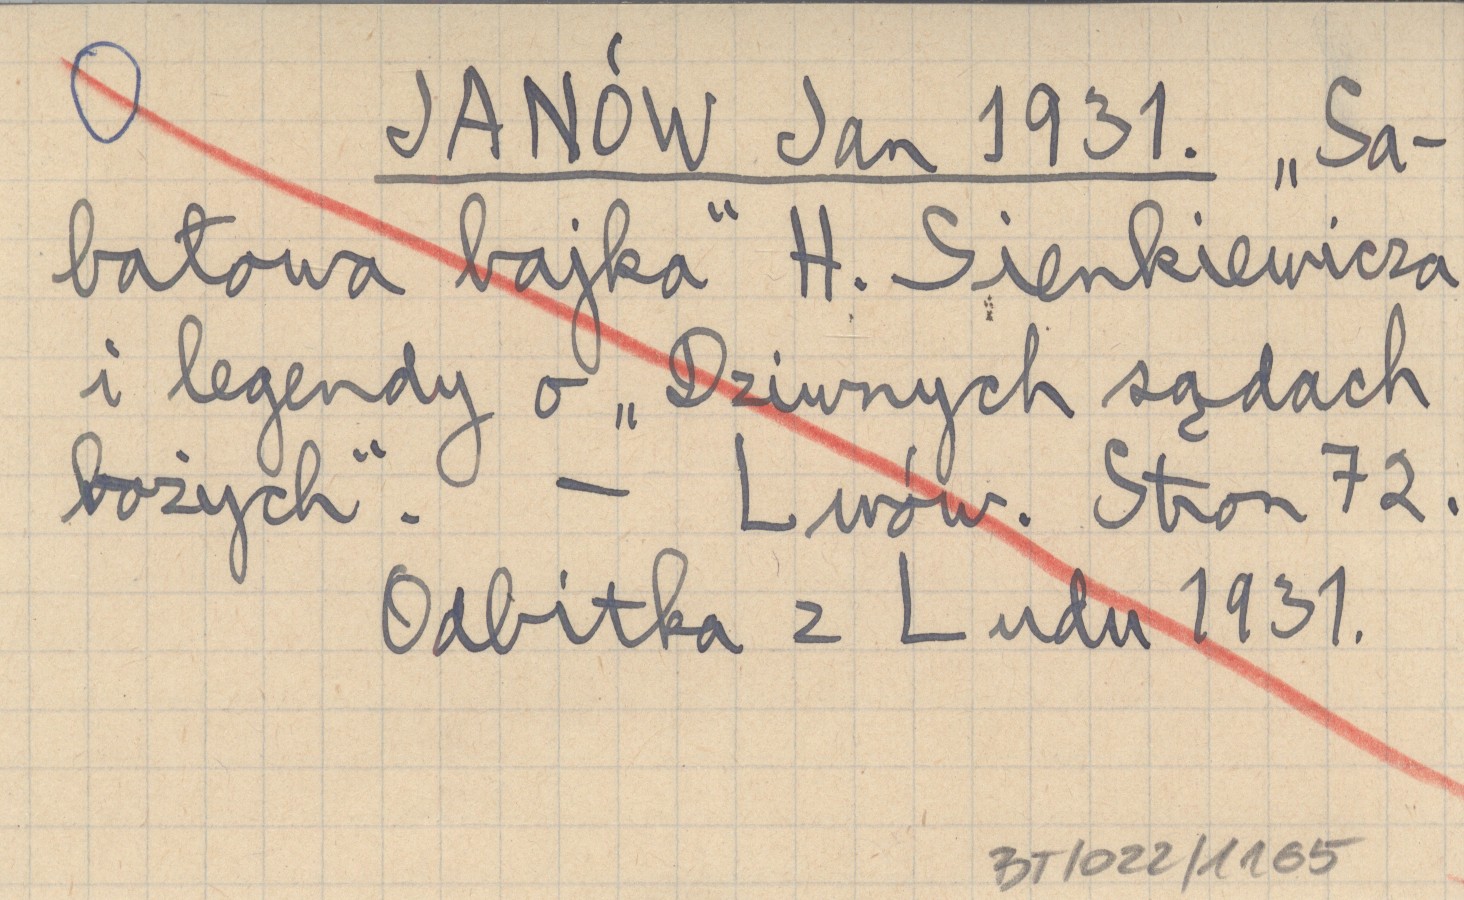 JANÓW Jan 1931. „Sa-
batowa bajka“ H. Sienkiewicza
i legendy o „Dziwnych sądach
bożych“. — Lwów. Stron 72.
Odbitka z Ludu 1931.
BT/022/1165